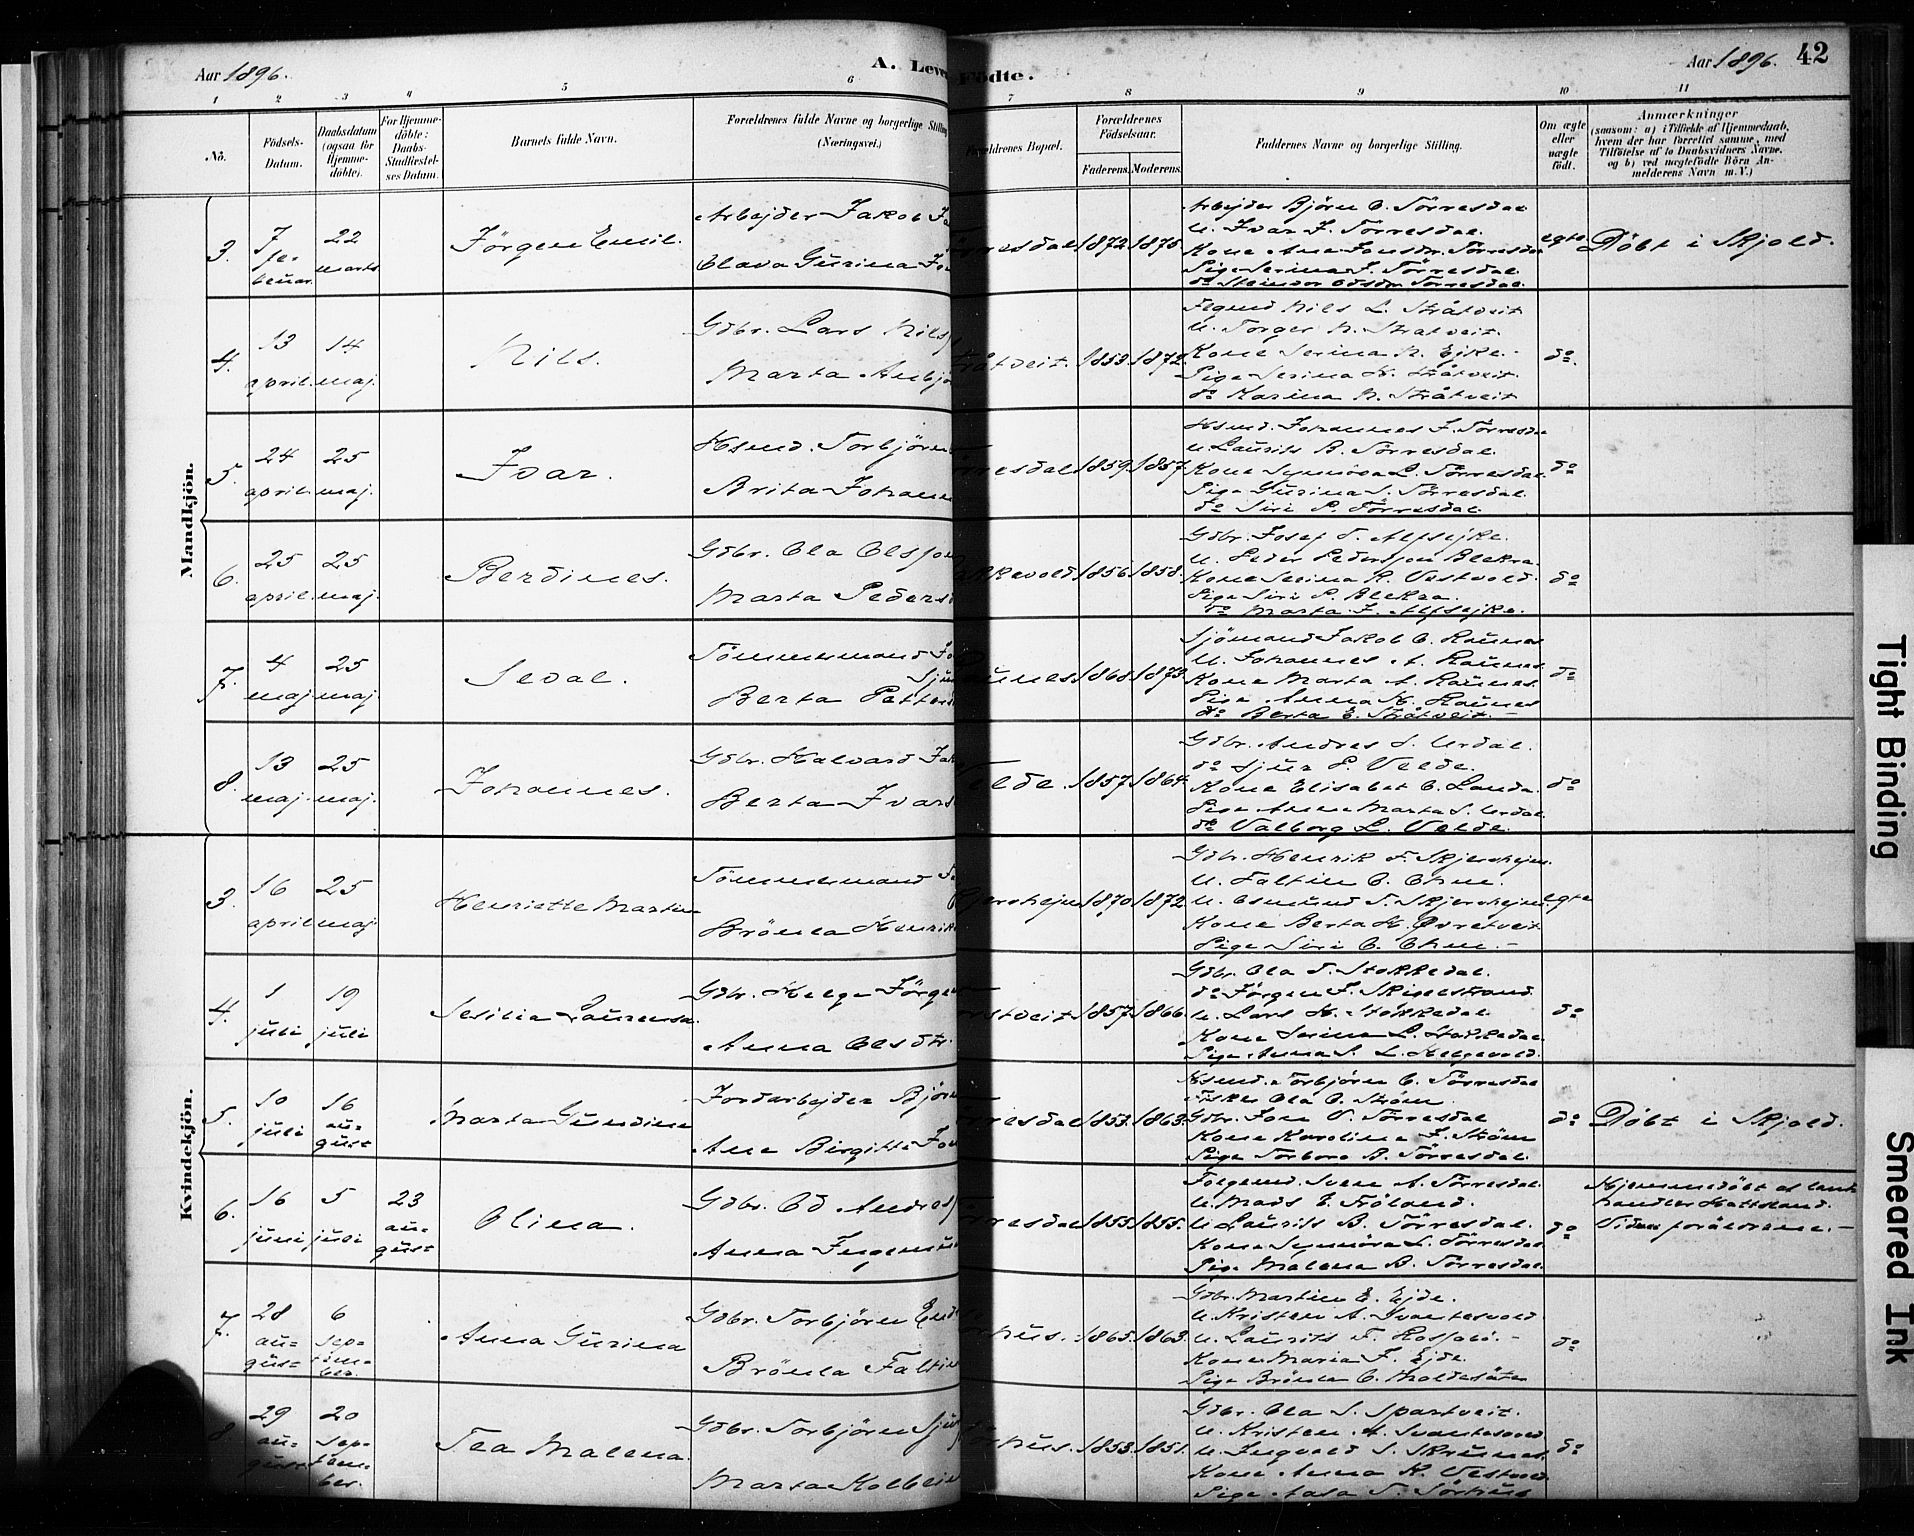 Aar 1896.
A. Leve
Födte.
Aar 1896. 42
1 2 3 4 5 6 7 8 9 10 11
No.
Födsels-Datum.
Daabsdatum (ogsaa for Hjemme-döbte).
For Hjemme-döbte: Daabs-Stadfæstel-ses Datum.
Barnets fulde Navn.
Forældrenes fulde Navne og borgerlige Stilling (Næringsvei.)
Forældrenes Bopæl.
Forældrenes Födselsaar.
Faderens. Moderens.
Faddernes Navne og borgerlige Stilling.
Om ægte eller uægte født.
Anmærkninger
(saasom: a) i Tilfælde af Hjemmedaab, hvem der har forrettet samme, med Tilföielse af to Daabsvidners Navne, og b) ved uægtefödte Börn An-melderens Navn m.V.)
Mandkjön.
3. 7 februar. 22 marts Jörgen Emil. Arbejder Jakob
Olava Gurina
rresdal 1872 1875.
Arbejder Björn O. Törresdal
U. Ivar J. Törresdal.
Kone Ane Jonsdtr. Törresdal
Pige Serina J. Törresdal.
do Steinvor Törresdal.
egte Döbt i Skjold.
4. 13 april. 14 maj. Nils.
Gdbr. Lars Nils
Marta Anbjö
råtveit. 1853. 1872.
Nils L. Stråtveit
U. Torger N. Stråtveit.
Kone Serina N. Ejke.
Pige Serina H. Stråtveit.
do Karina N. Stråtveit
do.
5. 24 april. 25 maj. Ivar.
Husmd. Torbjörn
Brita Johann
resdal 1859. 1857.
Husmd. Johannes J. Törresdal
U. Laurits B. Törresdal.
Kone Synnöva L. Törresdal.
Pige Gurina S. Törresdal.
do Siri P. Törresdal.
do
6. 25 april. 25 maj. Berdines.
Gdbr. Ola Olsson
Marta Peders
kkevold 1856. 1858.
Gdbr. Josef T. Alfsejke.
U. Peder Pederssen Blekra.
Kone Serina K. Vestvold.
Pige Siri P. Blekra.
do Marta J. Alfsejke.
do
7. 4 maj 25 maj. Seval.
Tömmermand
Berta Petter
aunes 1868 1873.
Sjömand Jakob O. Raunes
U. Johannes A. Raunes.
Kone Marta A. Raunes.
Pige Anna H. Raunes
do Berta E. Stråtveit.
do
8. 13 maj. 25 maj. Johannes.
Gdbr. Halvard
Berta Ivars
elde. 1857. 1864.
Gdbr. Andres S. Urdal.
do Sjur L. Velde.
Kone Elisabet O. Landa.
Pige Anne Marta S. Urdal
do Valborg L. Velde.
do
Kvindekjön.
3. 16 april 25 maj. Henriette Martine
Tömmermand
Brönla Henrik
jershejm 1870. 1872.
Gdbr. Henrik F. Skjershejm.
U. Faltin O. Ohm.
U. Osmund T. Skjershejm.
Kone Berta H. Övretveit
Pige Siri O. Ohm.
egte
4. 1 juli 19 juli Sesilia Laurensa.
Gdbr. Helge Jörge
Anna Olsdtr.
rstveit 1857. 1866.
Gdbr. Ola T. Stokkedal.
do Jörgen J. Skipelstrand.
U. Lars H. Stokkedal
Kone Serina L. Stokkedal.
Pige Anna S. L. Helgevold.
do
5. 10 juli 16 august Marta Gundine
Jordarbejder Björn
Ane Birgitte Jo
rresdal 1853. 1863.
Husmd. Torbjörn O. Törresdal
Fisker Ola O. Ström.
Gdbr. Jon O. Törresdal
Kone Karoline J. Ström
Pige Torbora B. Törresdal.
do Döbt i Skjold.
6. 16 juni 5 juli 23 august Olina.
Gdbr. Od Andres
Anna Ingemun
rresdal 1855. 1855.
Svein A. Törresdal.
U. Mads E. Fröland.
U. Laurits B. Törresdal.
Kone Synnöva L. Törresdal
Pige Malena B. Törresdal.
do
Hjemmedöbt af land
handler Hatteland.
Vidner forældrene.
7. 28 august 6 september. Anna Gurina
Gdbr. Torbjörn End
Brönla Faltin
rhus. 1865. 1863.
Gdbr. Martin E. Ejde.
U. Kristen A. Svantesvold
U. Laurits T.
Kone Maria F. Ejde.
Pige Brönla O. Moldesäter
do
8. 29 august 20 september. Tea Malena.
Gdbr. Torbjörn Sju
Marta Kolbein
rhus. 1853. 1851.
Gdbr. Ola S. Spartveit.
U. Kristen A. Svantesvold
U. Ingvald S. Skrunes.
Kone Anna K. Vestvold
Pige Aasa T. Törhus
do
Tight Binding
Smeared Ink